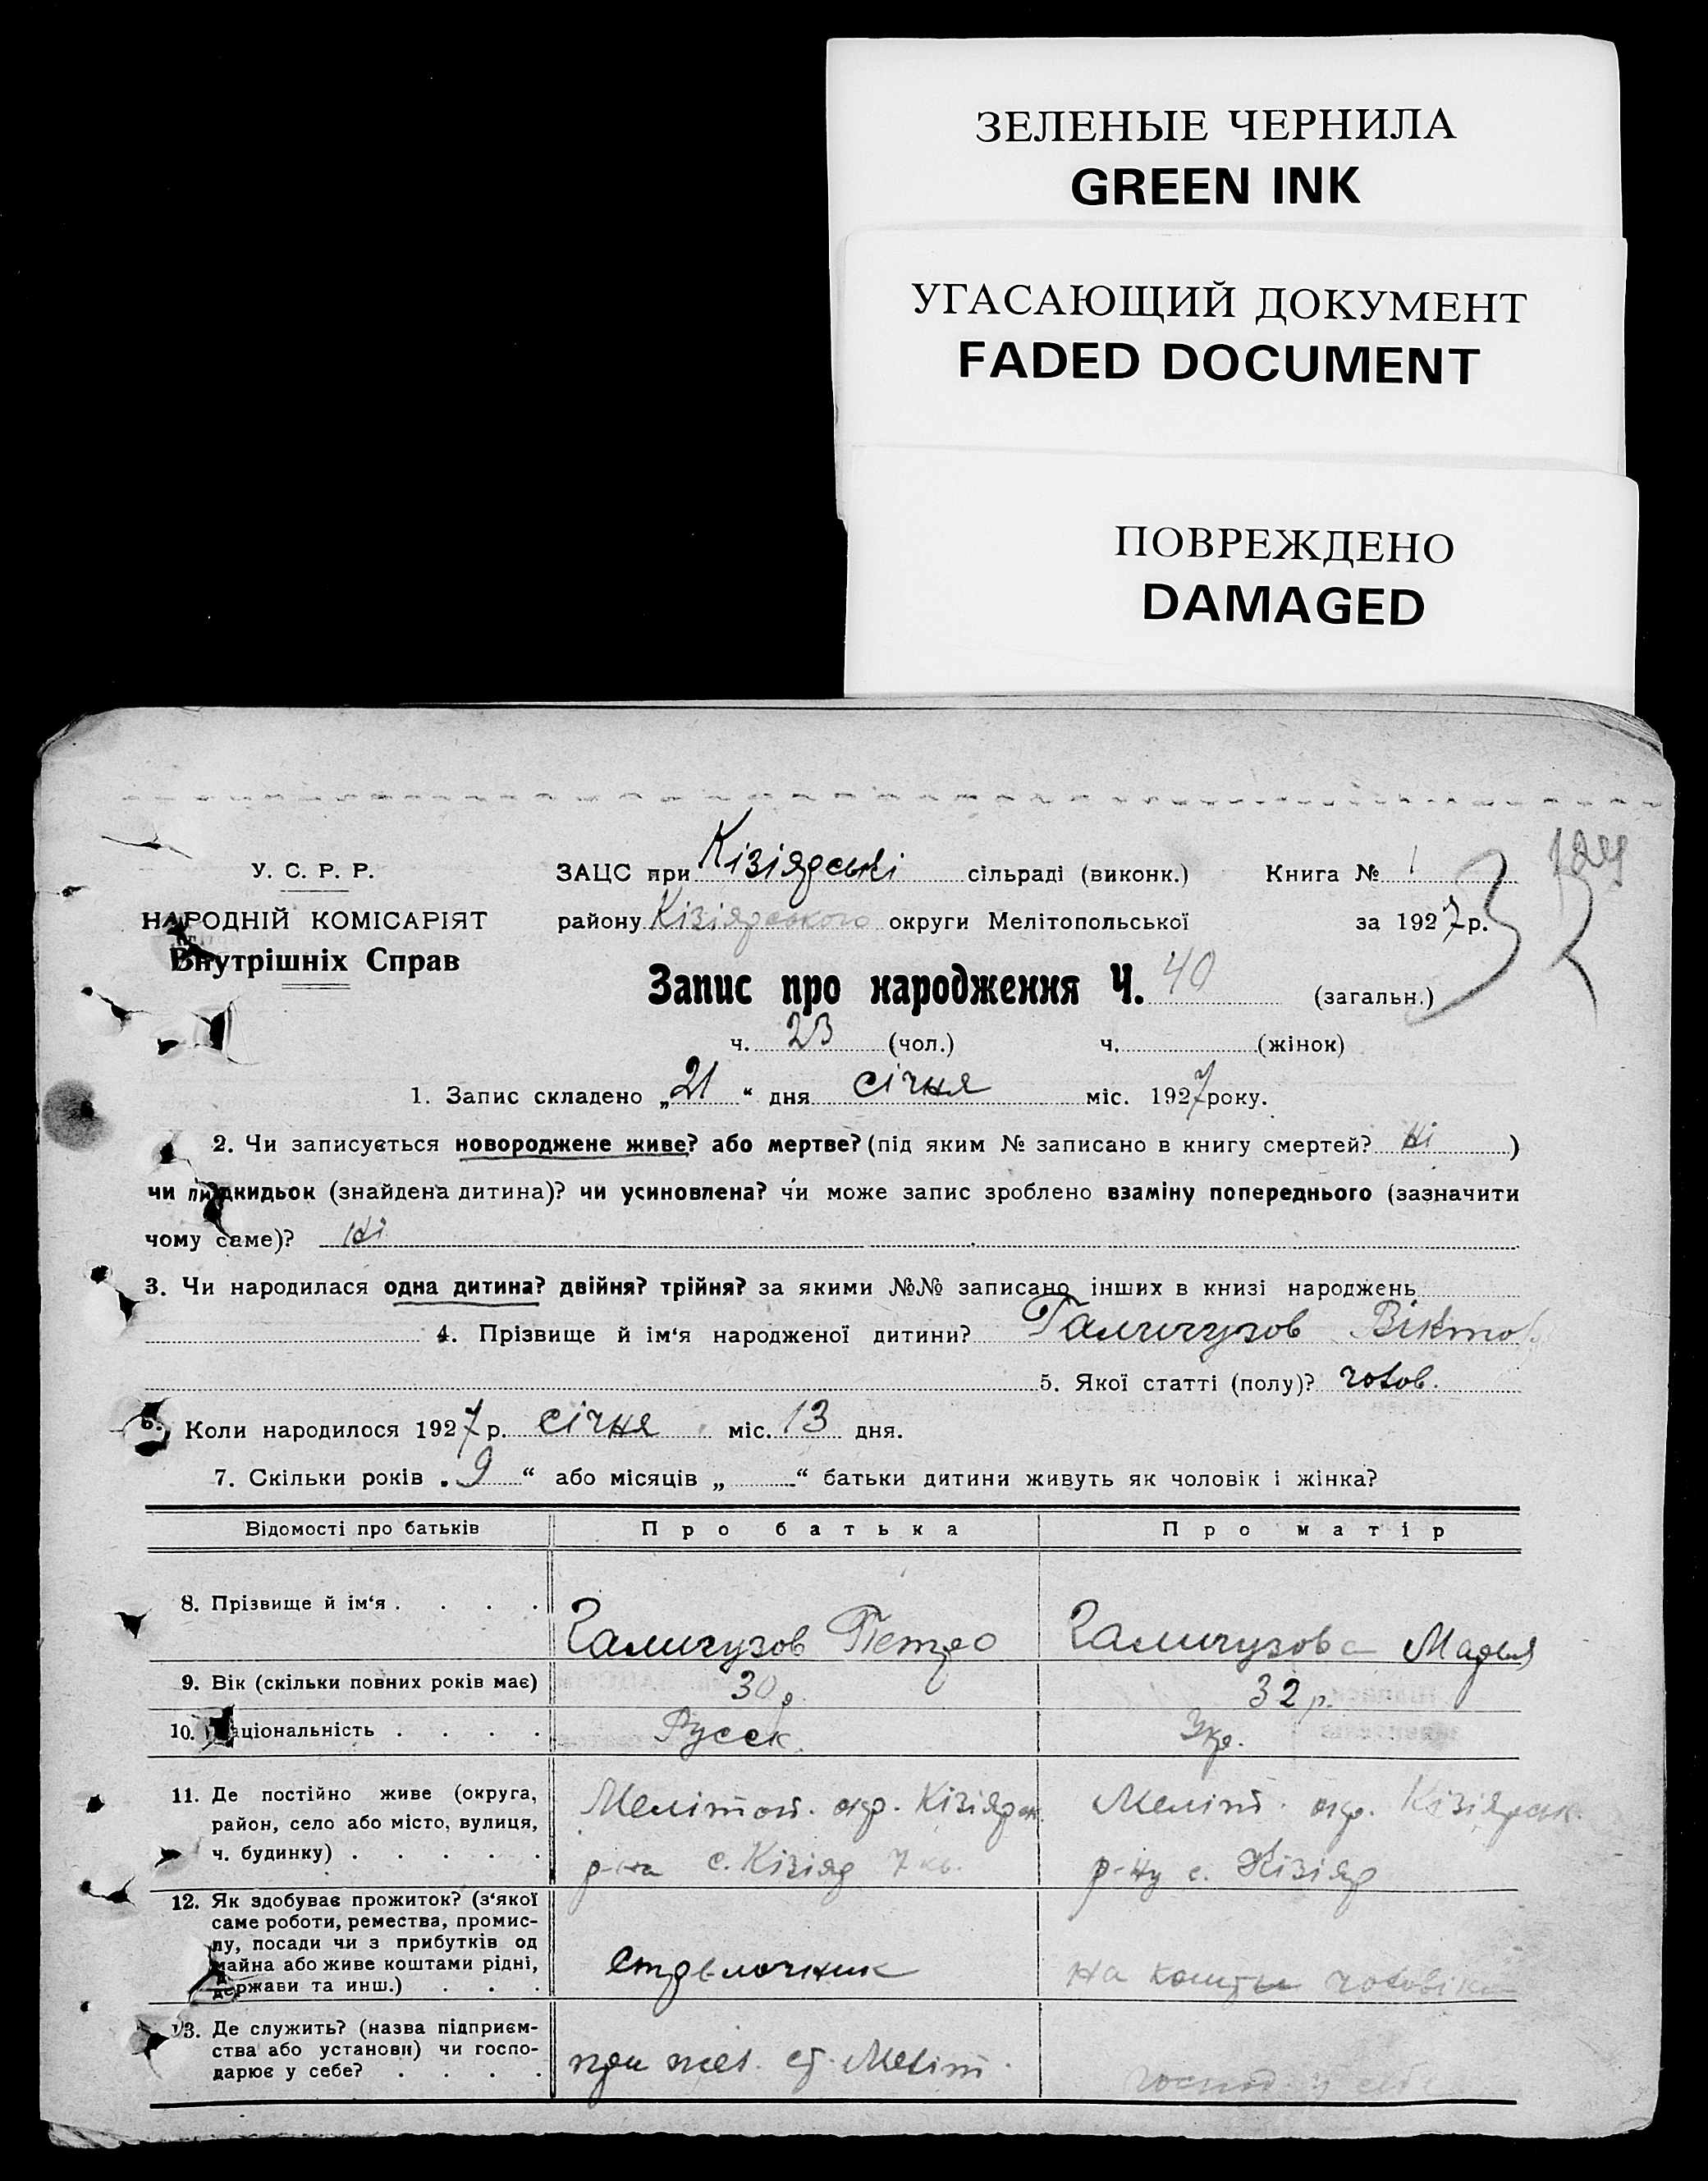 ЗЕЛЕНЫЕ ЧЕРНИЛА
GREEN INK
УГАСАЮЩИЙ ДОКУМЕНТ
FADED DOCUMENT
ПОВРЕЖДЕНО
DAMAGED
У. С. Р. Р.
НАРОДНІЙ КОМІСАРІЯТ
Внутрішніх Справ
ЗАЦС при Кізіярські сільраді (виконк.) Книга № 1
району Кізіярського округи Мелітопольської за 1927 р.
Запис про народження Ч. 40 (загальн.)
ч. 23 (чол.) ч. (жінок)
1. Запис складено „21“ дня січня міс. 1927 року.
2. Чи записується новороджене живе? або мертве? (під яким № записано в книгу смертей? Ні)
чи підкидьок (знайдена дитина)? чи усиновлена? чи може запис зроблено взаміну попереднього (зазначити
чому саме)? Ні
3. Чи народилася одна дитина? двійня? трійня? за якими №№ записано інших в книзі народжень
4. Прізвище й ім‘я народженої дитини? Галичузов Віктор
5. Якої статті (полу)? чолов.
6. Коли народилося 1927 р. січня міс. 13 дня.
7. Скільки років „9“ або місяців „ “ батьки дитини живуть як чоловік і жінка?
Відомості про батьків Про батька Про матір
8. Прізвище й ім‘я . . . . Галичузов Петро Галичузова Марія
9. Вік (скільки повних років має) 30 р. 32 р.
10. Національність . . . . Русск. Укр.
11. Де постійно живе (округа,
район, село або місто, вулиця,
ч. будинку) . . . . .
Мелітоп. окр. Кізіярск.
р-на с. Кізіяр 7 кв.
Меліт. окр. Кізіярськ.
р-ну с. Кізіяр
12. Як здобуває прожиток? (з‘якої
саме роботи, ремества, промис-
лу, посади чи з прибутків од
майна або живе коштами рідні,
держави та инш.) . . .
стрелочник
на кошти чоловіка
13. Де служить? (назва підприєм-
ства або установи) чи госпо-
дарює у себе? . . . .
при жел. ст. Меліт.
господ. у себе